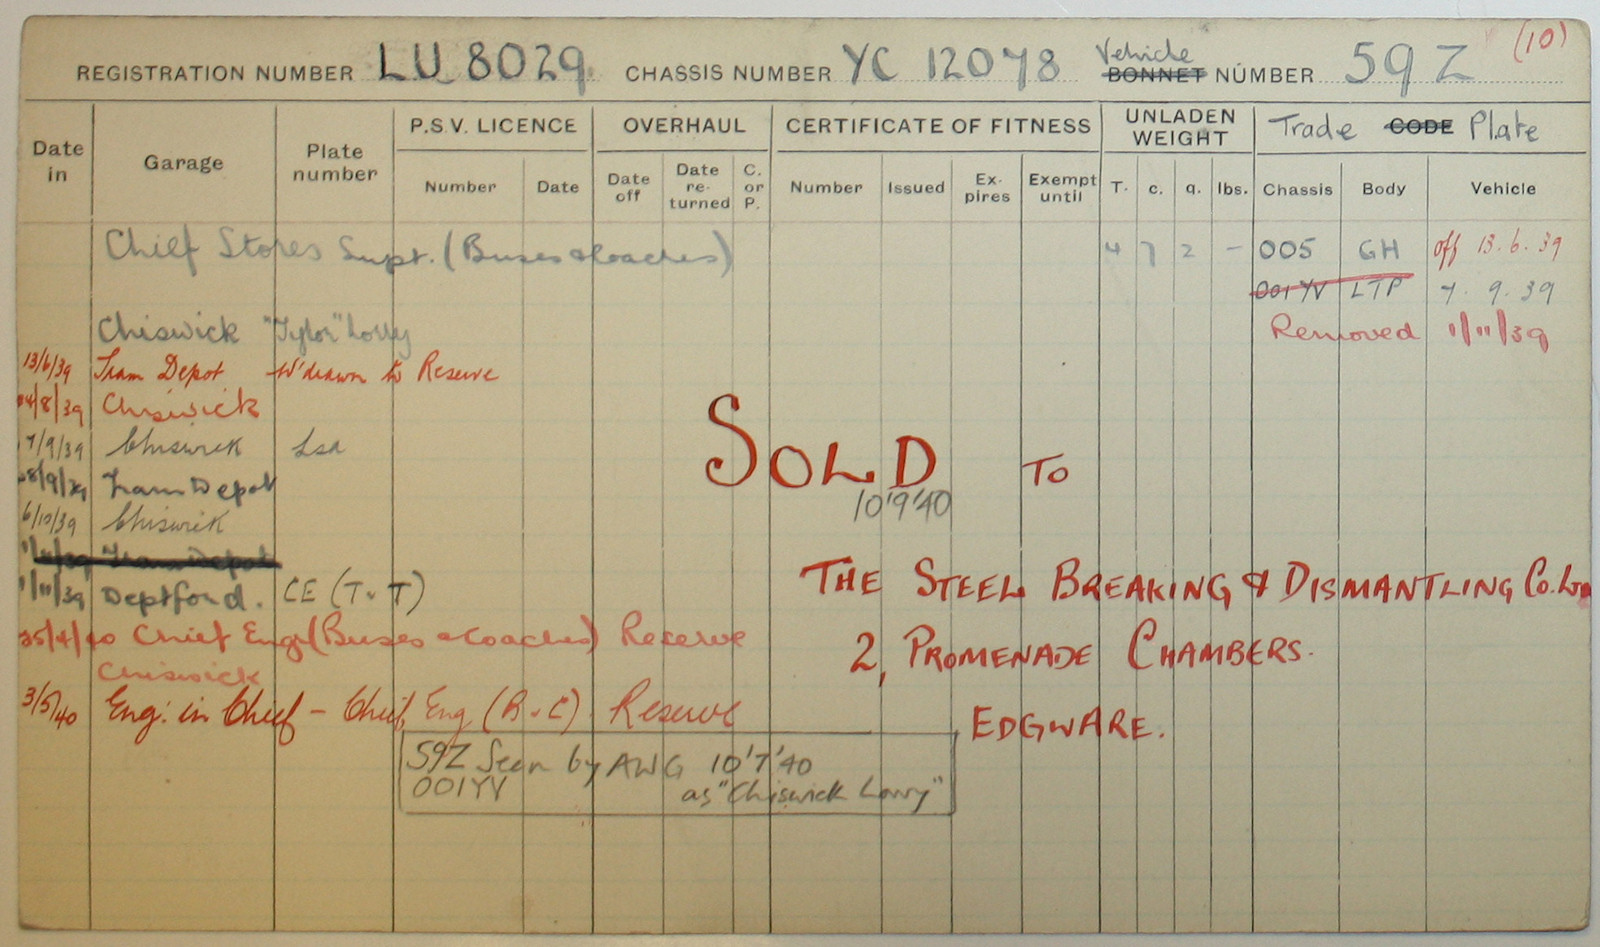 (10)
REGISTRATION NUMBER LU 8029 CHASSIS NUMBER YC 12078 Vehicle BONNET NUMBER 59 Z
Date in Garage Plate number P.S.V. LICENCE OVERHAUL CERTIFICATE OF FITNESS UNLADEN WEIGHT Trade CODE Plate
Number Date Date off Date re-turned C. or P. Number Issued Ex-pires Exempt until T. c. q. lbs. Chassis Body Vehicle
Chief Stores Supt. (Buses & Coaches) 4 7 2 - 005 GH off 13.6.39
001YV LTP 7.9.39
Chiswick "Tylor" Lorry Removed 1/11/39
13/6/39 Tram Depot W'drawn to Reserve
4/8/39 Chiswick
7/9/39 Chiswick
SOLD TO
8/9/39 Tram Depot
10'9'40
6/10/39 Chiswick
Tram Depot
1/11/39 Deptford. CE (T & T)
THE STEEL BREAKING & DISMANTLING Co. Ltd
25/4/40 Chief Engr (Buses & Coaches) Reserve
Chiswick
2, PROMENADE CHAMBERS.
3/5/40 Eng: in Chief - Chief Eng (B & C). Reserve
EDGWARE.
59Z Seen by AWG 10'7'40
001YV as "Chiswick Lorry"